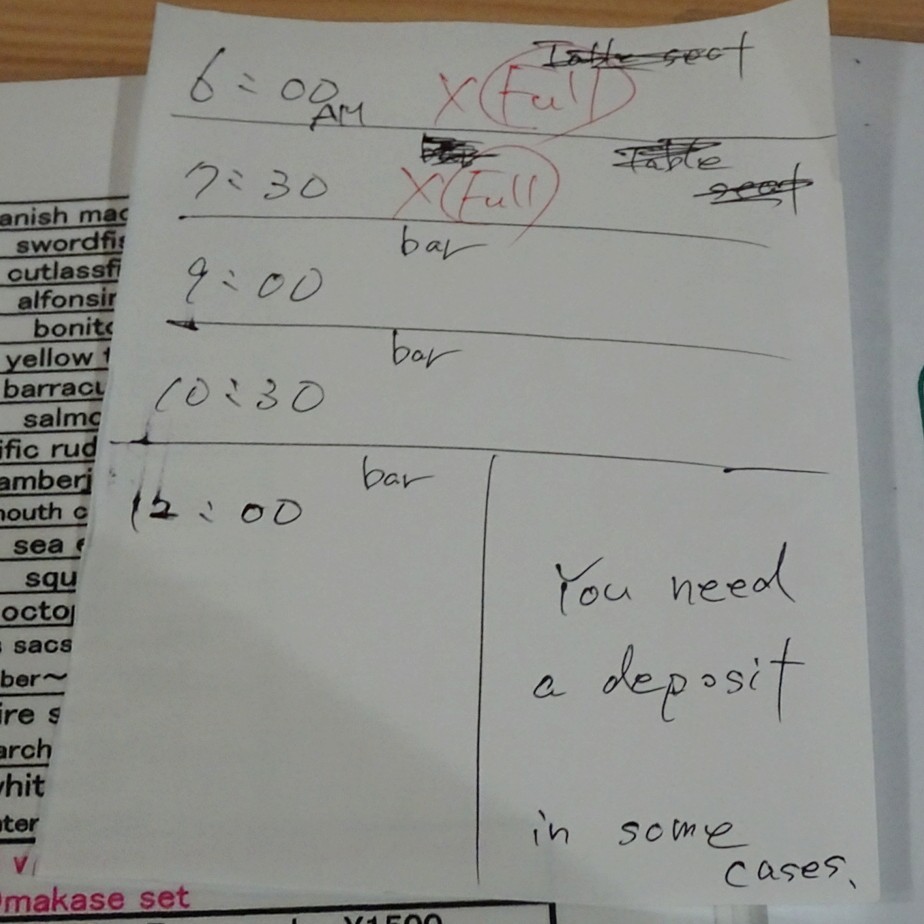 6:00 AM X Full Table seat
7:30 X Full Table seat
bar
9:00
bar
10:30
bar
12:00
You need
a deposit
in some
cases.
anish mac
swordfis
cutlassfi
alfonsin
bonito
yellow t
barracu
salmo
ific rud
amberj
nouth c
sea
squ
octop
sacs
ber~
ire s
arch
whit
ter
makase set
¥1500